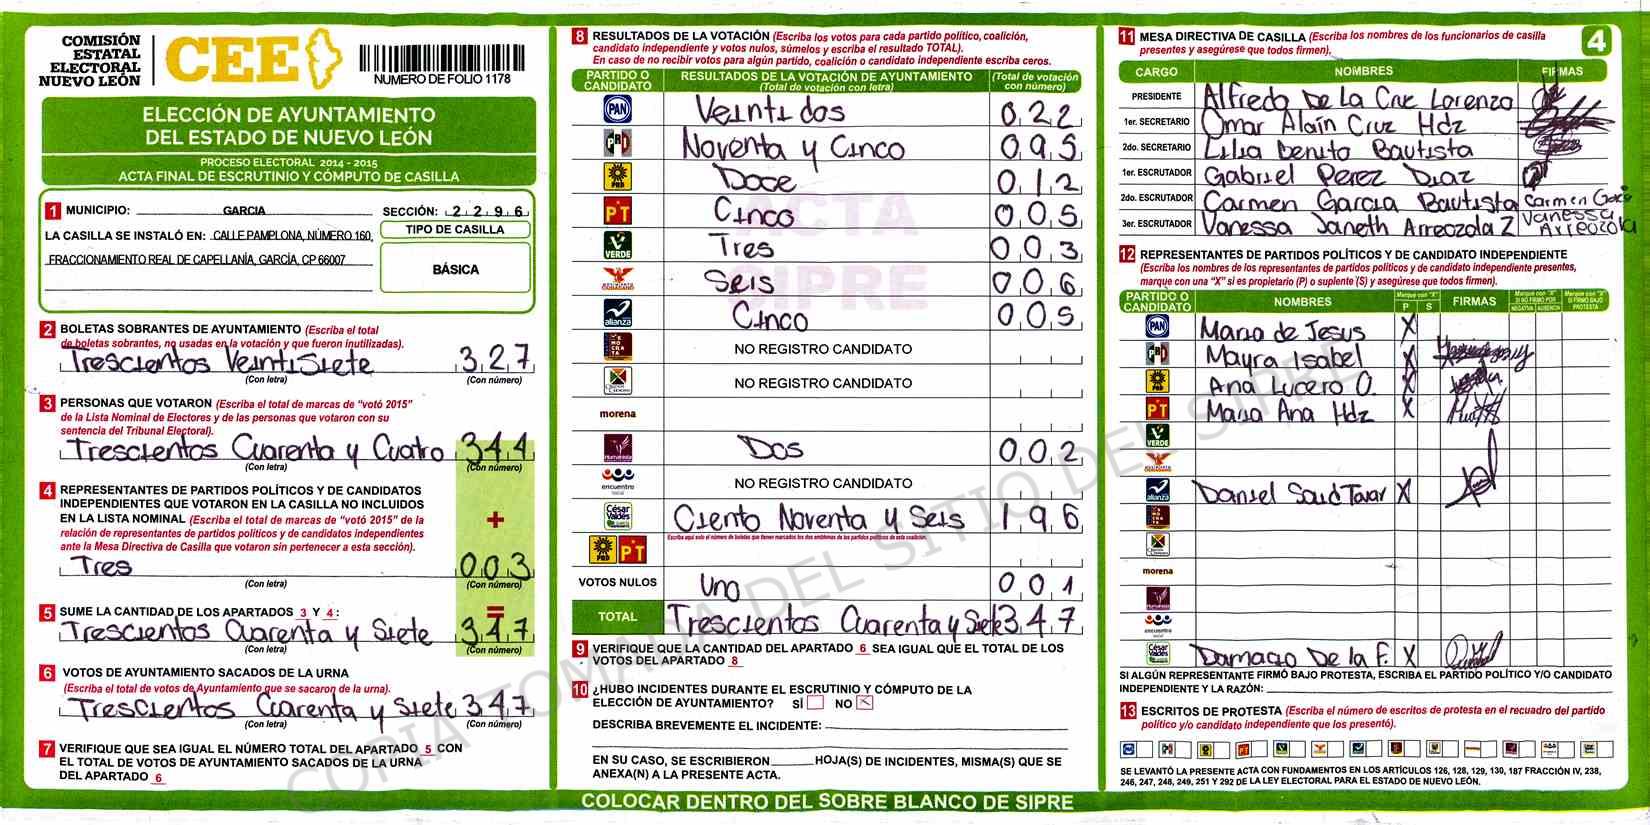 COMISIÓN
ESTATAL
ELECTORAL
NUEVO LEÓN
CEE
NUMERO DE FOLIO 1178
ELECCIÓN DE AYUNTAMIENTO
DEL ESTADO DE NUEVO LEÓN
PROCESO ELECTORAL 2014 - 2015
ACTA FINAL DE ESCRUTINIO Y CÓMPUTO DE CASILLA
1 MUNICIPIO: GARCIA SECCIÓN: 2 2 9 6
LA CASILLA SE INSTALÓ EN: CALLE PAMPLONA, NÚMERO 160,
FRACCIONAMIENTO REAL DE CAPELLANÍA, GARCÍA, CP 66007
TIPO DE CASILLA
BÁSICA
2 BOLETAS SOBRANTES DE AYUNTAMIENTO (Escriba el total
de boletas sobrantes, no usadas en la votación y que fueron inutilizadas).
Trescientos Veintisiete 3 2 7
(Con letra) (Con número)
3 PERSONAS QUE VOTARON (Escriba el total de marcas de "votó 2015"
de la Lista Nominal de Electores y de las personas que votaron con su
sentencia del Tribunal Electoral).
Trescientos Cuarenta y Cuatro 3 4 4
(Con letra) (Con número)
4 REPRESENTANTES DE PARTIDOS POLÍTICOS Y DE CANDIDATOS
INDEPENDIENTES QUE VOTARON EN LA CASILLA NO INCLUIDOS
EN LA LISTA NOMINAL (Escriba el total de marcas de "votó 2015" de la
relación de representantes de partidos políticos y de candidatos independientes
ante la Mesa Directiva de Casilla que votaron sin pertenecer a esta sección).
+
Tres 0 0 3
(Con letra) (Con número)
=
5 SUME LA CANTIDAD DE LOS APARTADOS 3 Y 4 :
Trescientos Cuarenta y Siete 3 4 7
(Con letra) (Con número)
6 VOTOS DE AYUNTAMIENTO SACADOS DE LA URNA
(Escriba el total de votos de Ayuntamiento que se sacaron de la urna).
Trescientos Cuarenta y Siete 3 4 7
(Con letra) (Con número)
7 VERIFIQUE QUE SEA IGUAL EL NÚMERO TOTAL DEL APARTADO 5 CON
EL TOTAL DE VOTOS DE AYUNTAMIENTO SACADOS DE LA URNA
DEL APARTADO 6
8 RESULTADOS DE LA VOTACIÓN (Escriba los votos para cada partido político, coalición,
candidato independiente y votos nulos, súmelos y escriba el resultado TOTAL).
En caso de no recibir votos para algún partido, coalición o candidato independiente escriba ceros.
PARTIDO O CANDIDATO
RESULTADOS DE LA VOTACIÓN DE AYUNTAMIENTO
(Total de votación con letra)
(Total de votación con número)
PAN Veintidos 0 2 2
PRI Noventa y Cinco 0 9 5
PRD Doce 0 1 2
PT Cinco 0 0 5
VERDE Tres 0 0 3
Seis 0 0 6
alianza Cinco 0 0 5
NO REGISTRO CANDIDATO
NO REGISTRO CANDIDATO
morena
Humanista Dos 0 0 2
encuentro social NO REGISTRO CANDIDATO
César Valdés Ciento Noventa y Seis 1 9 6
Escriba aquí solo el número de boletas que tienen marcados los dos emblemas de los partidos políticos de esta coalición.
PRD PT
VOTOS NULOS Uno 0 0 1
TOTAL Trescientos Cuarenta y Siete 3 4 7
ACTA
SIPRE
9 VERIFIQUE QUE LA CANTIDAD DEL APARTADO 6 SEA IGUAL QUE EL TOTAL DE LOS
VOTOS DEL APARTADO 8
10 ¿HUBO INCIDENTES DURANTE EL ESCRUTINIO Y CÓMPUTO DE LA
ELECCIÓN DE AYUNTAMIENTO? SÍ NO X
DESCRIBA BREVEMENTE EL INCIDENTE:
EN SU CASO, SE ESCRIBIERON HOJA(S) DE INCIDENTES, MISMA(S) QUE SE
ANEXA(N) A LA PRESENTE ACTA.
COLOCAR DENTRO DEL SOBRE BLANCO DE SIPRE
11 MESA DIRECTIVA DE CASILLA (Escriba los nombres de los funcionarios de casilla
presentes y asegúrese que todos firmen).
4
CARGO NOMBRES FIRMAS
PRESIDENTE Alfredo De La Cruz Lorenzo
1er. SECRETARIO Omar Alain Cruz Hdz
2do. SECRETARIO Lilia Benito Bautista
1er. ESCRUTADOR Gabriel Perez Diaz
2do. ESCRUTADOR Carmen Garcia Bautista Carmen
3er. ESCRUTADOR Vanessa Janeth Arreozola Z Vanessa Arreozola
12 REPRESENTANTES DE PARTIDOS POLÍTICOS Y DE CANDIDATO INDEPENDIENTE
(Escriba los nombres de los representantes de partidos políticos y de candidato independiente presentes,
marque con una "X" si es propietario (P) o suplente (S) y asegúrese que todos firmen).
PARTIDO O CANDIDATO NOMBRES Marque con "X" P S FIRMAS Marque con "X" SI NO FIRMÓ POR NEGATIVA AUSENCIA Marque con "X" SI FIRMÓ BAJO PROTESTA
PAN Maria de Jesus X
PRI Mayra Isabel X
PRD Ana Lucero O. X
PT Maria Ana Hdz X
VERDE
alianza Daniel Saud Tovar X
morena
encuentro social
César Valdés Damacio De la F. X
SI ALGÚN REPRESENTANTE FIRMÓ BAJO PROTESTA, ESCRIBA EL PARTIDO POLÍTICO Y/O CANDIDATO
INDEPENDIENTE Y LA RAZÓN:
13 ESCRITOS DE PROTESTA (Escriba el número de escritos de protesta en el recuadro del partido
político y/o candidato independiente que los presentó).
SE LEVANTÓ LA PRESENTE ACTA CON FUNDAMENTOS EN LOS ARTÍCULOS 126, 128, 129, 130, 187 FRACCIÓN IV, 238,
246, 247, 248, 249, 251 Y 292 DE LA LEY ELECTORAL PARA EL ESTADO DE NUEVO LEÓN.
COPIA TOMADA DEL SITIO DEL SIPRE